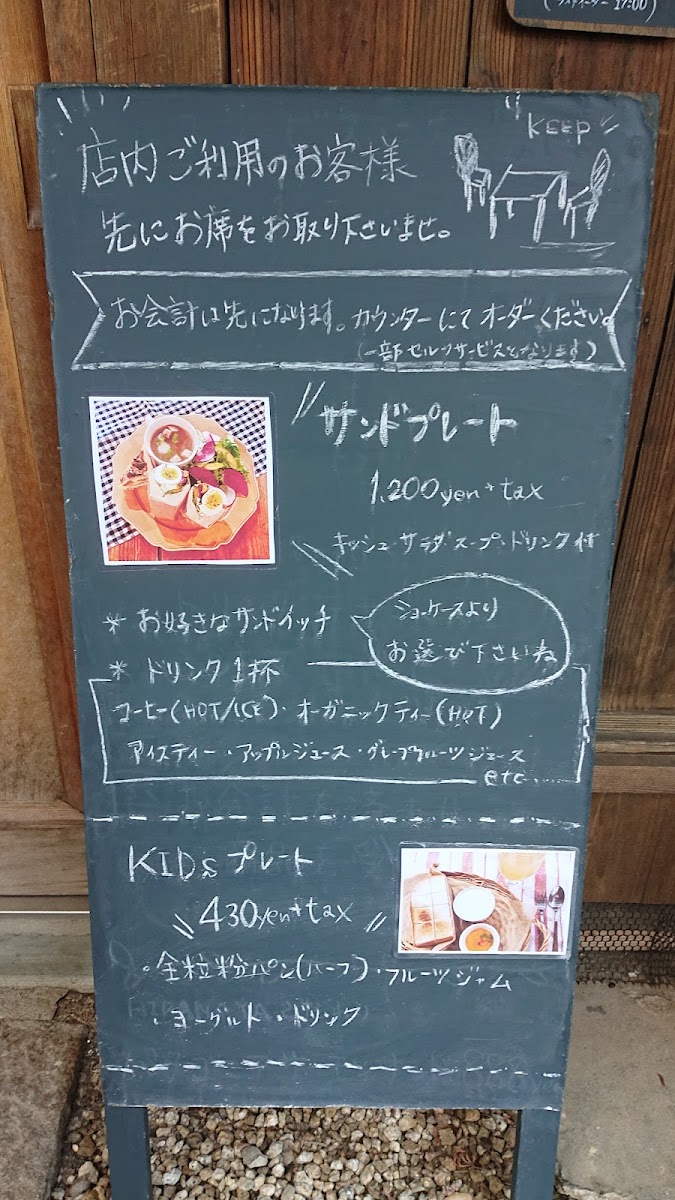 (ラストオーダー 17:00)
KEEP
店内ご利用のお客様
先にお席をお取り下さいませ。
お会計は先になります。カウンターにてオーダーください。
(一部セルフサービスとなります)
サンドプレート
1,200yen+tax
キッシュ・サラダ・スープ・ドリンク付
ショーケースより
* お好きなサンドイッチ
お選び下さいね
* ドリンク1杯
コーヒー(HOT/ICE)・オーガニックティー(HOT)
アイスティー・アップルジュース・グレープフルーツジュース
etc......
KIDsプレート
430yen+tax
・全粒粉パン(ハーフ)・フルーツジャム
・ヨーグルト・ドリンク